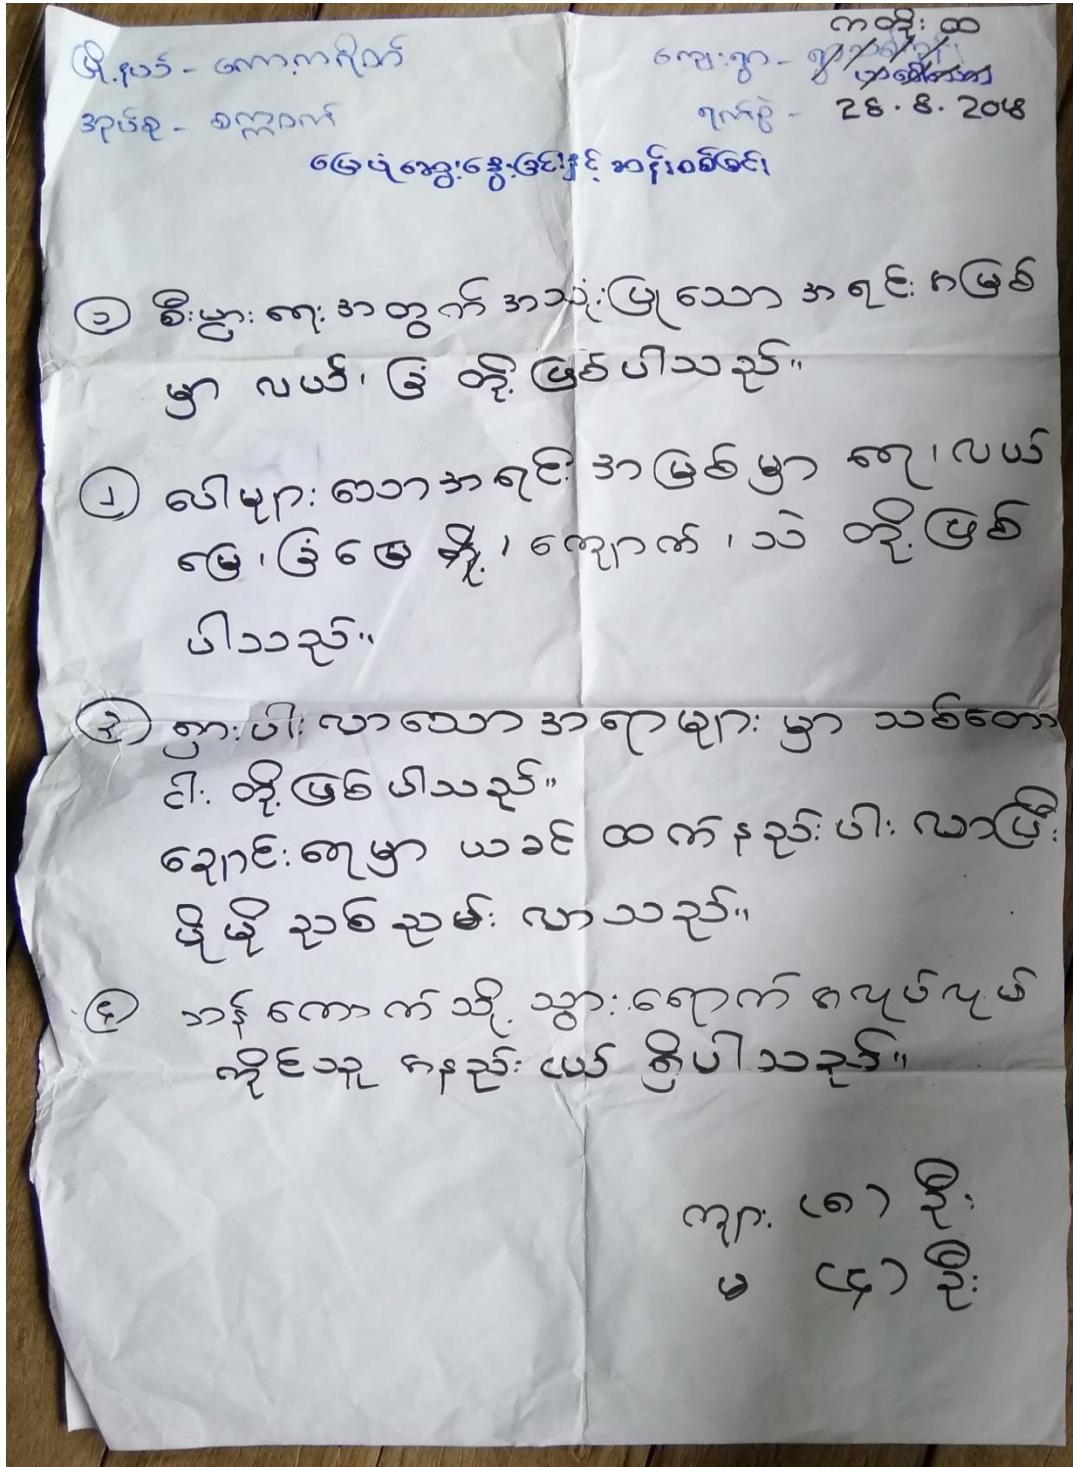 ကတိုးထ
မြို့နယ် - ကော့ကရိတ် ကျေးရွာ -
အုပ်စု - စက္ကဝက် ရက်စွဲ - 26.8.2018
မြေပုံဆွေးနွေးခြင်းနှင့် ဆန်းစစ်ခြင်း
၁ စီးပွားရေးအတွက် အသုံးပြုသော အရင်းအမြစ်
မှာ လယ်၊ ခြံ တို့ဖြစ်ပါသည်။
၂ ပေါများသောအရင်းအမြစ်မှာ ရေ၊ လယ်
မြေ၊ ခြံမြေ တို့၊ ကျောက်၊ သဲ တို့ဖြစ်
ပါသည်။
၃ ရှားပါးလာသောအရာများမှာ သစ်တော
ငါး တို့ဖြစ်ပါသည်။
ချောင်းရေမှာ ယခင်ထက်နည်းပါးလာပြီး
ပိုမို ညစ်ညမ်းလာသည်။
၄ ဘန်ကောက်သို့ သွားရောက်အလုပ်လုပ်
ကိုင်သူ အနည်းငယ် ရှိပါသည်။
ကျား (၈) ဦး
မ (၄) ဦး